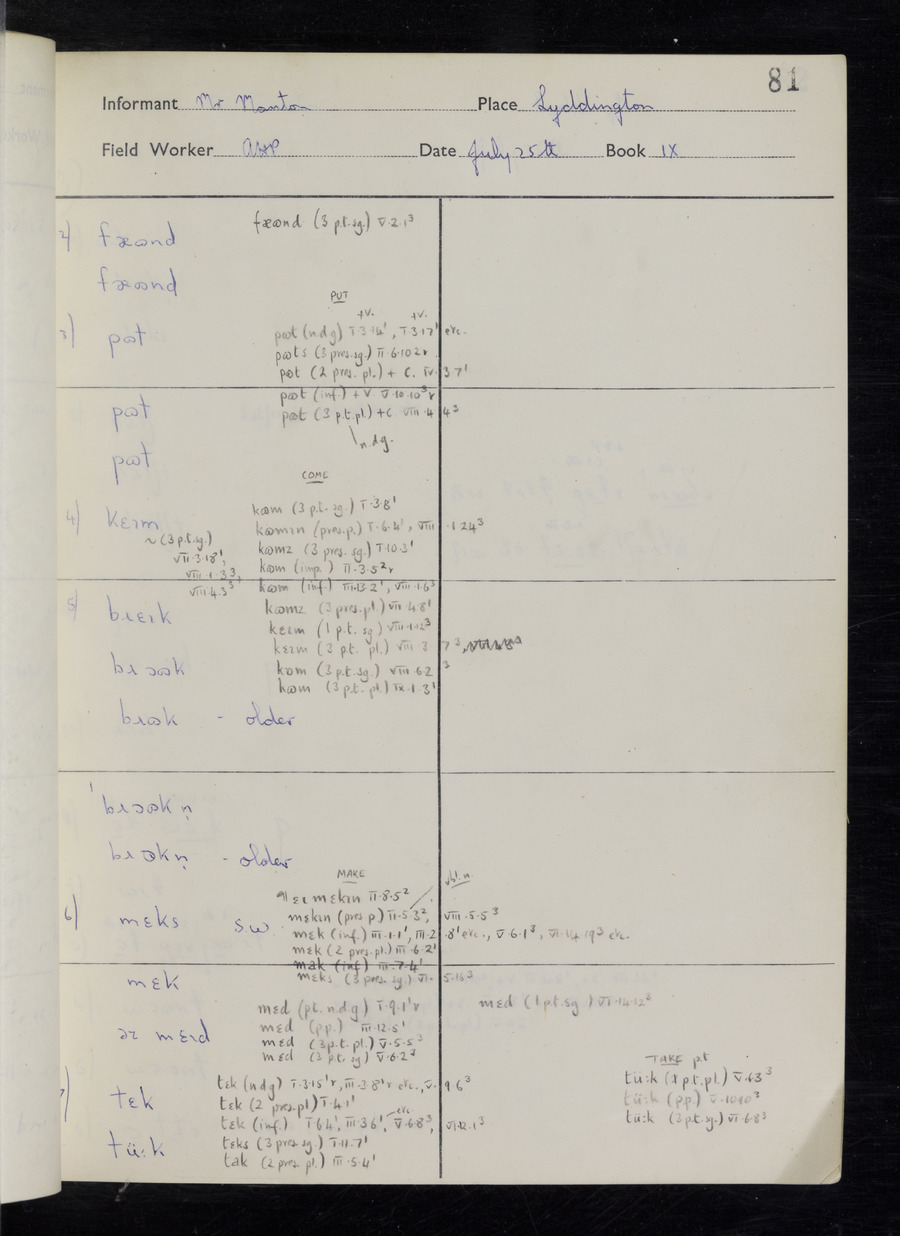 81
Informant Mr Manton Place Lyddington
Field Worker Date July 25th Book IX
2) fɹɷnd fɹɷnd (3 p.t.sg.) V.2.1³
fɹɷnd
PUT
+V. +V.
3) pɷt pɷt (n.d.g) I.3.14¹, I.3.17¹ etc.
pɷts (3 pres.sg.) II.6.10 2r
pɷt (2 pres. pl.) + C. IV.3 7¹
pɷt (inf.) + V. V.10.10³r
pɷt pɷt (3 p.t.pl.) +C VIII.4 4³
n.d.g.
pɷt
COME
4) kɛɪm kɷm (3 p.t.sg.) I.3.8¹
~ (3 p.t.sg.) kɷmɪn (pres.p.) I.6.4¹, VIII.1.24³
VII.3.18¹, kɷmz (3 pres. sg.) I.10.3¹
VIII.1.3³, kɷm (imp.) II.3.5²r
VIII.4.3³ kɷm (inf.) III.13.2¹, VIII.1.6³
5) bɹɛɪk kɷmz (3 pres.pl.) VII.4.8¹
kɛɪm (1 p.t. sg.) VIII.1.12³
kɛɪm (3 p.t. pl.) VIII.3 7³,
bɹɔɷk kɷm (3 p.t.sg.) VIII.6.2³
kɷm (3 p.t. pl.) IX.1.3¹
bɹɷk - older
ˈbɹɔɷkn̩
bɹɷkn̩ - older
MAKE vbl.n.
mɛkɪn II.8.5²
6) mɛks s.w. mɛkɪn (pres p.) II.5 3², VIII.5.5³
mɛk (inf.) III.1.1¹, III.2.8¹ etc., V.6.1³, VI.14.19³ etc.
mɛk (2 pres.pl.) III.6.2¹
mak (inf) III.7.4¹
mɛk mɛks (3 pres. sg.) VI.5.16³
mɛd (pt. n.d.g) I.9.1¹r mɛd (1 pt.sg.) VI.14.12³
əz mɛɪd mɛd (pp.) III.12.5¹
mɛd (3 p.t. pl.) V.5.5³
mɛd (3 p.t. sg) V.6.2³
TAKE p.t
7) tɛk tɛk (n.d.g) I.3.15¹r, III.3.8¹r etc., V.9 6³ tü:k (1 p.t.pl.) V.1.3³
tɛk (2 pres.pl) I.4.1¹ tü:k (pp.) V.10.10³
tɛk (inf.) I.6.4¹, III.3 6¹, etc. V.6.8³, VI.12.1³ tü:k (3 p.t.sg.) VI.6.8³
tü:k tɛks (3 pres.sg.) I.11.7¹
tak (2 pres. pl.) III.5.4¹